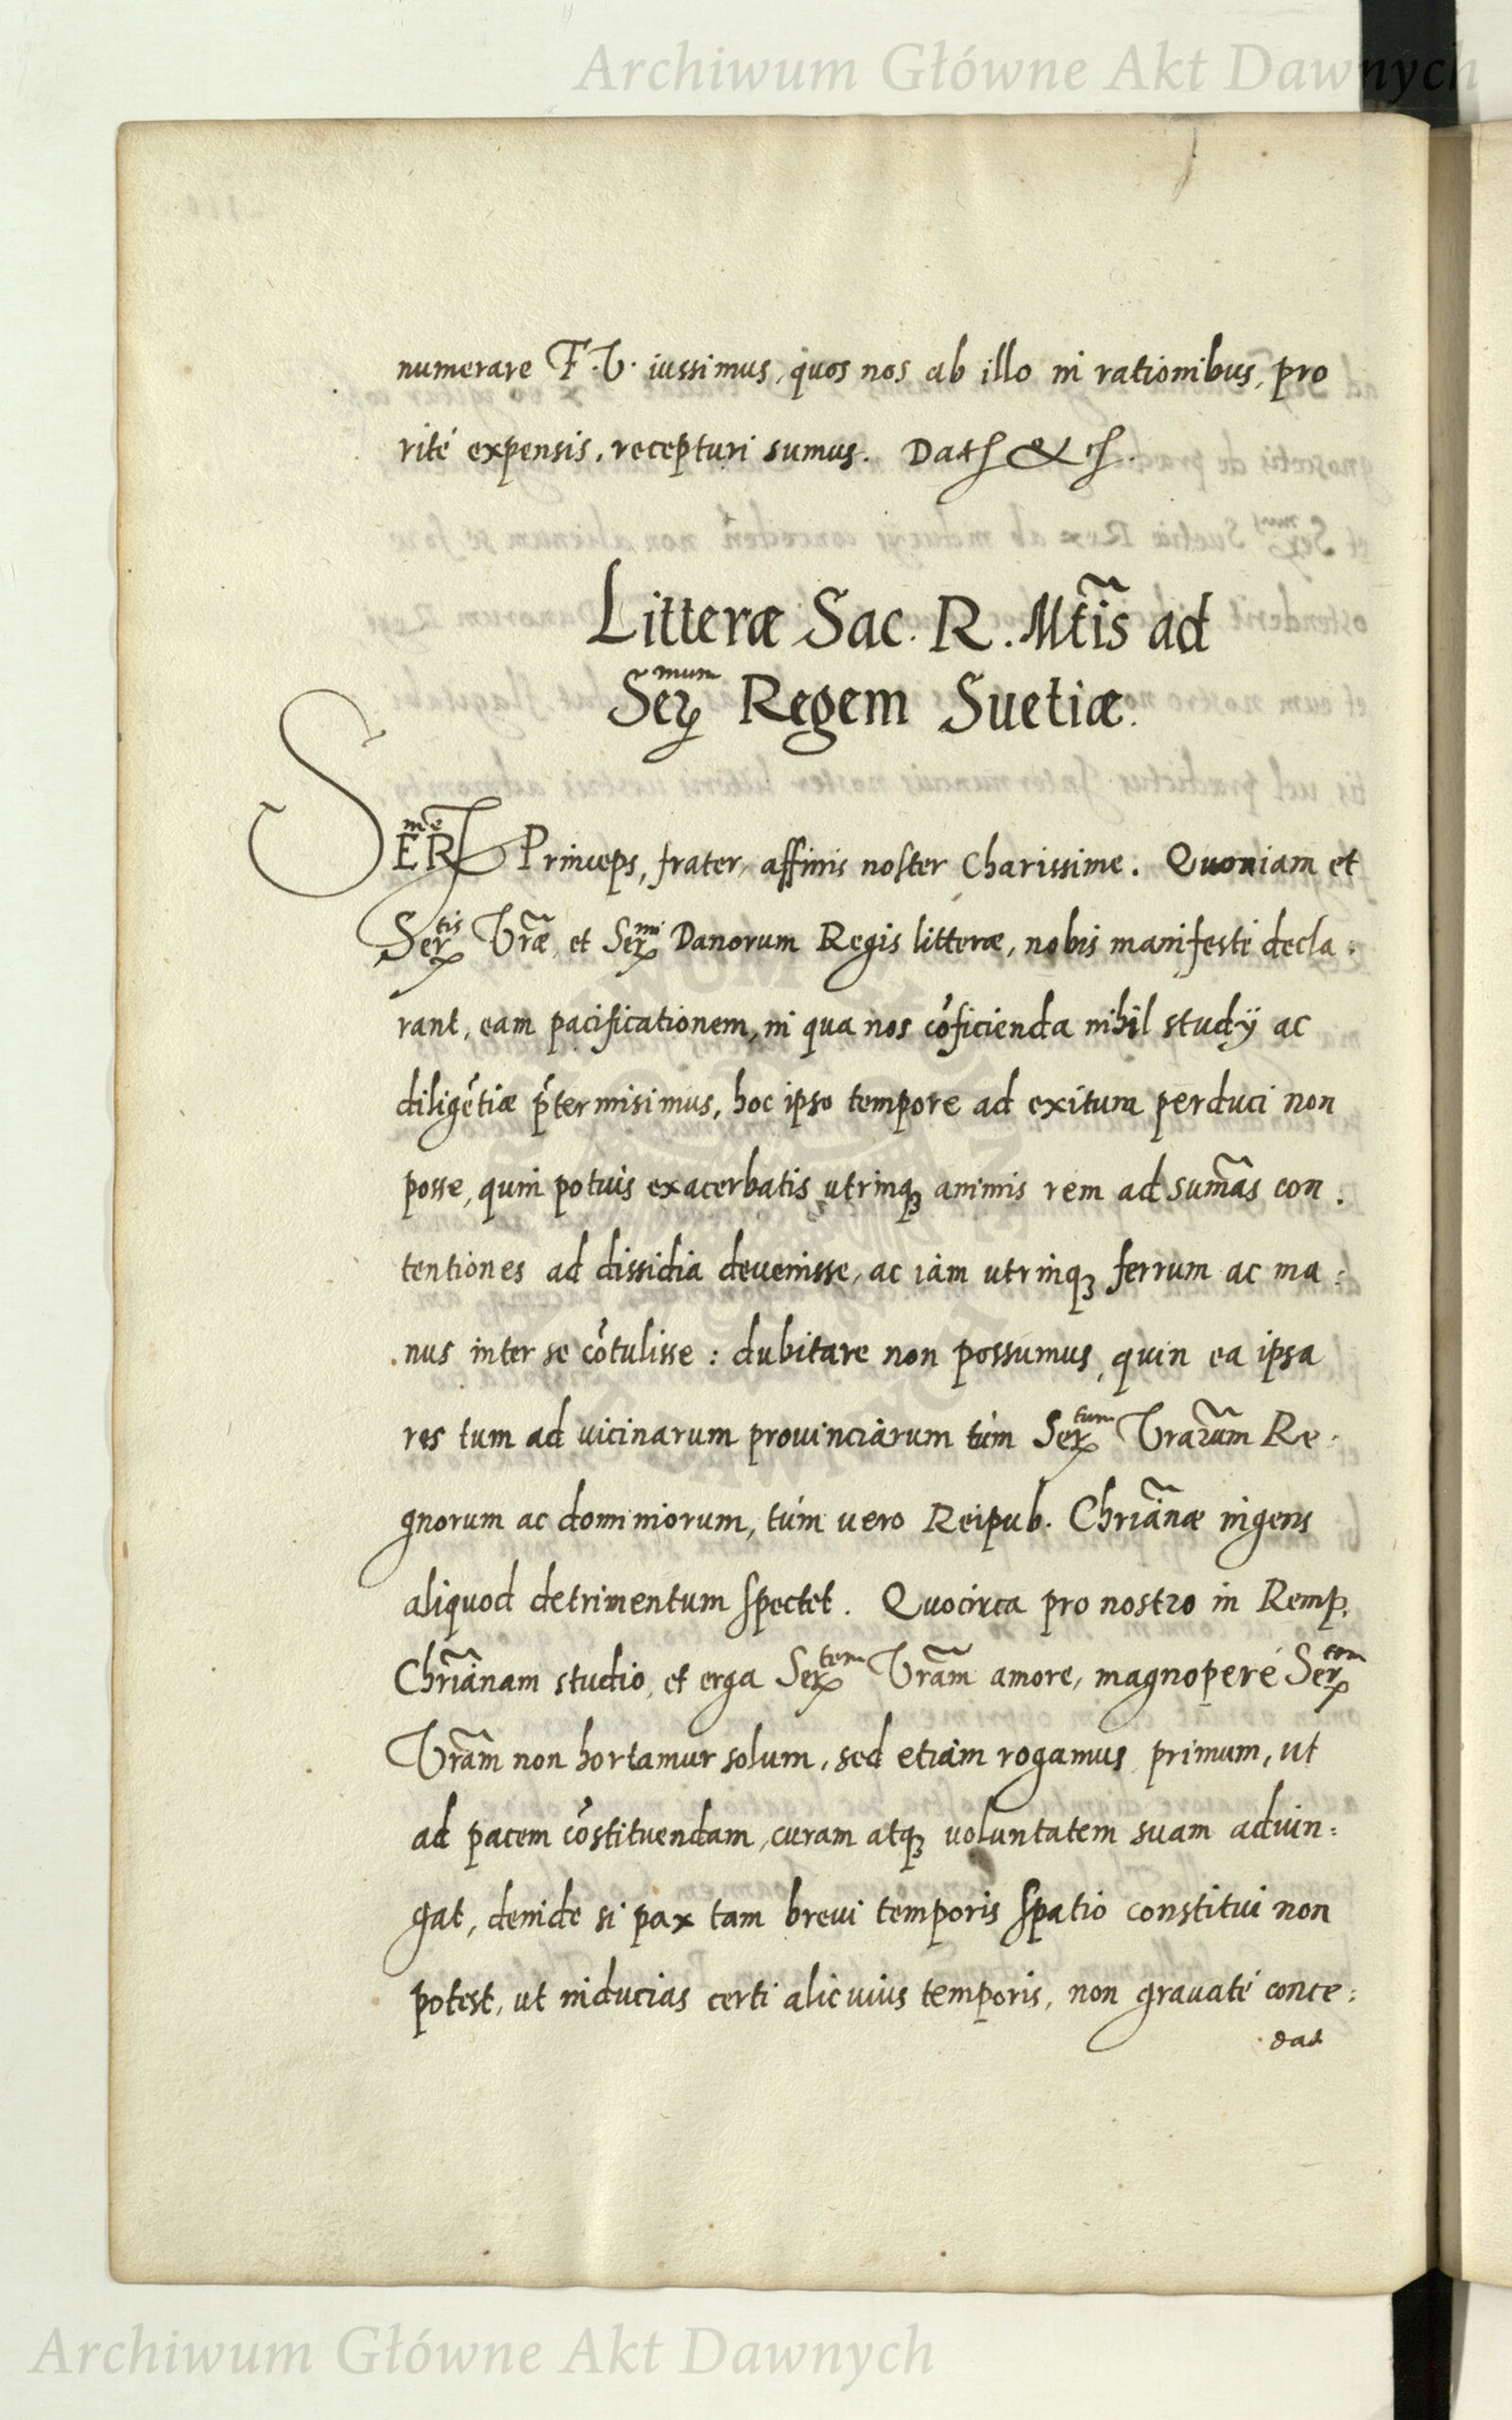 Archiwum Główne Akt Dawnych
numerare F. V. iussimus, quos nos ab illo in rationibus, pro
rité expensis, recepturi sumus. Dat. &c.
Litteræ Sac. R. Mt͠is ad
Ser^mum Regem Suetiæ.
SER^me Princeps, frater, affinis noster Charissime. Quoniam et
Ser^tis Vr̃æ, et Ser^mi Danorum Regis litteræ, nobis manifesté decla:
rant, eam pacificationem, in qua nos cõficienda nihil studÿ ac
diligẽtiæ p̃termisimus, hoc ipso tempore ad exitum perduci non
posse, quin potuis exacerbatis utrinq3 animis rem ad sum̃as con:
tentiones ad dissidia devenisse, ac iam utrinq3 ferrum ac ma:
nus inter se cõtulisse: dubitare non possumus, quin ea ipsa
res tum ad vicinarum provinciarum túm Ser^tum Vrar̃um Re:
gnorum ac dominiorum, túm vero Reipub. Chriãnæ ingens
aliquod detrimentum spectet. Quocirca pro nostro in Remp.
Chriãnam studio, et erga Ser^tem Vrãm amore, magnoperé Ser^tem
Vrãm non hortamur solum, sed etiam rogamus primum, ut
ad pacem cõstituendam, curam atq3 voluntatem suam adiun:
gat, deinde si pax tam brevi temporis spatio constitui non
potest, ut inducias certi alicuius temporis, non gravaté conce:
dat
Archiwum Główne Akt Dawnych